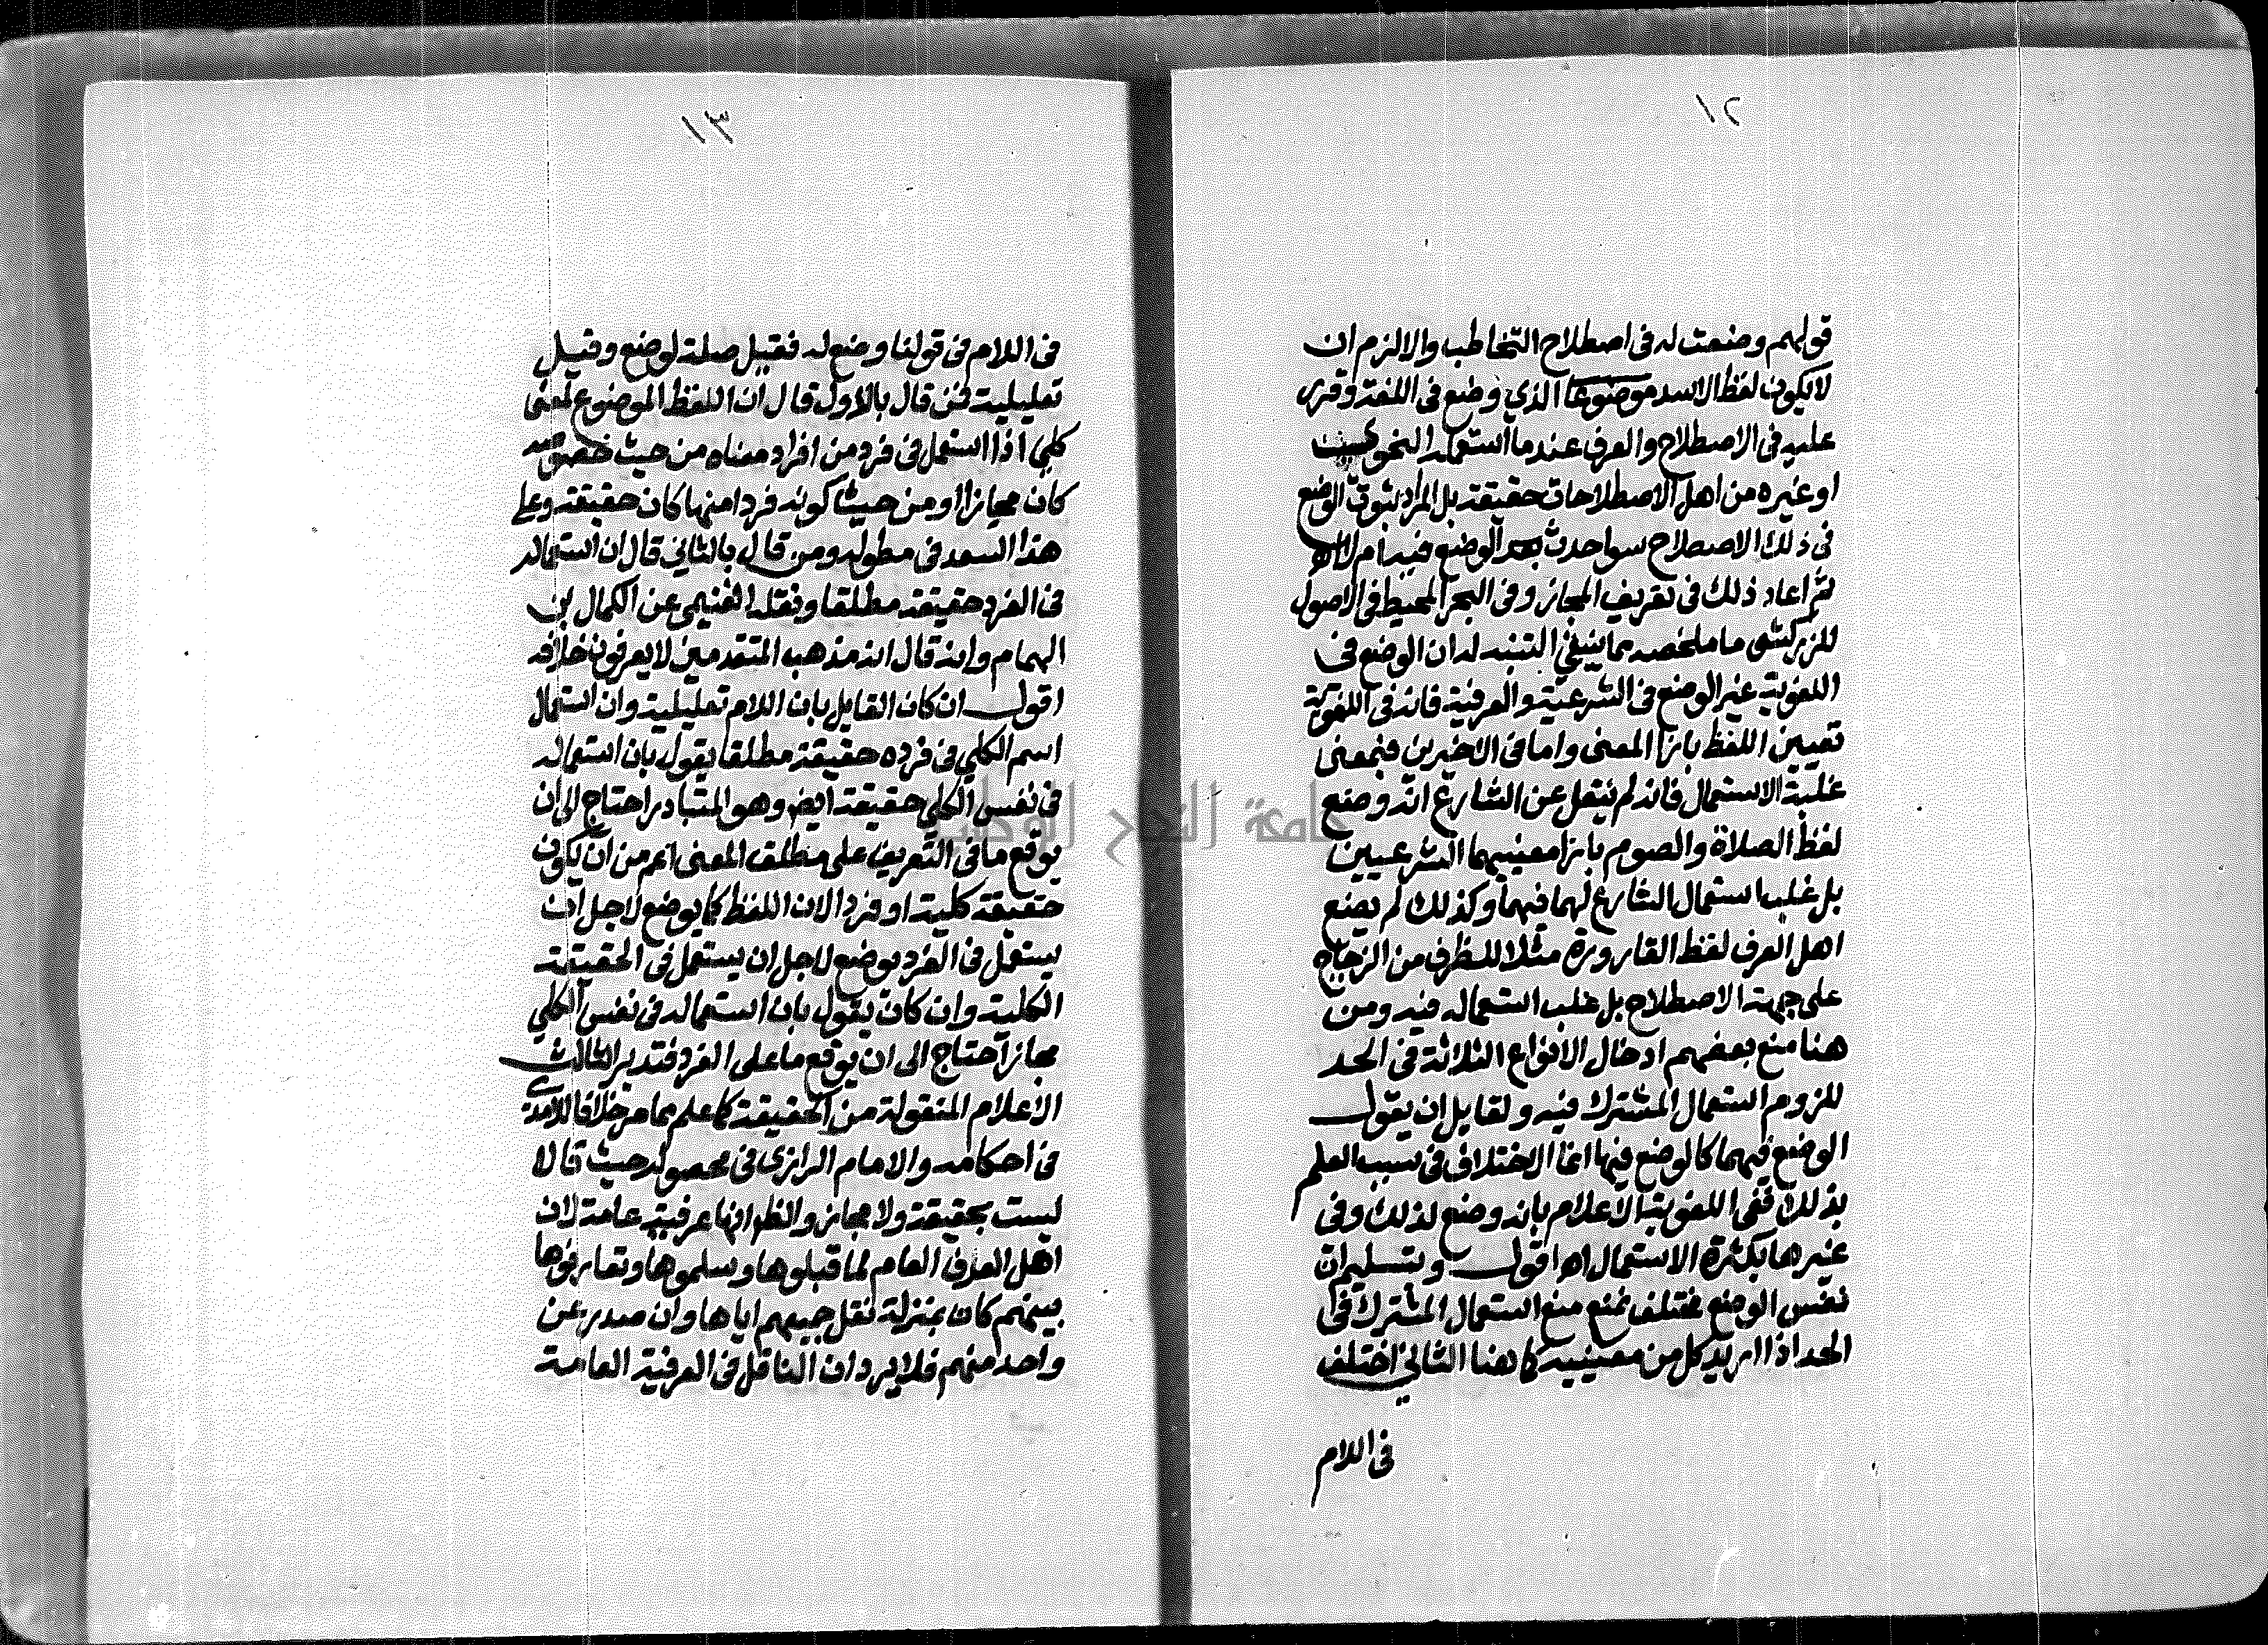 ١٢
قولهم وضعت له فى اصطلاح التخاطب والالزم ان
لايكون لفظ الاسد موضوعا الذي وضع فى اللغة وقرر
عليه فى الاصطلاح والعرف عندما استعمله النحوي
او غيره من اهل الاصطلاحات حقيقة بل المراد ثبوت الوضع
فى ذلك الاصطلاح سوا حدث بعد الوضع فيه ام لا اه
ثم اعاد ذلك فى تعريف المجاز وفى البحر المحيط فى الاصول
للزركشى ما ملخصه مما ينبغي التنبه له ان الوضع فى
اللغوية غير الوضع فى الشرعية والعرفية فانه فى اللغوية
تعيين اللفظ بازا المعنى واما فى الاخيرين فبمعنى
غلبة الاستعمال فانه لم ينقل عن الشارع انه وضع
لفظ الصلاة والصوم بازا معنييهما الشرعيين
بل غلب استعمال الشارع لهما فيهما وكذلك لم يضع
اهل العرف لفظ القارورة مثلا للظرف من الزجاج
على جهة الاصطلاح بل غلب استعماله فيه ومن
هنا منع بعضهم ادخال الانواع الثلاثة فى الحد
للزوم استعمال المشترك فيه ولقايل ان يقول
الوضع فيهما كالوضع فيها انما الاختلاف فى سبب العلم
بذلك ففى اللغوية الاعلام بانه وضع لذلك وفى
غيرها بكثرة الاستعمال اه اقول وبتسليم ان
نفس الوضع مختلف نمنع منع استعمال المشترك فى
الحد اذا اريد كل من معنييه كما هنا الثاني اختلف
فى اللام
١٣
فى اللام فى قولنا وضع له فقيل صلة لوضع وقيل
تعليلية فمن قال بالاول قال ان اللفظ الموضوع لمعنى
كلي اذا استعمل فى فرد من افراد معناه من حيث خصوصه
كان مجازا او من حيث كونه فردا منها كان حقيقة وعلى
هذا السعد فى مطوله ومن قال بالثاني قال ان استعماله
فى الفرد حقيقة مطلقا ونقله الغنيمى عن الكمال بن
الهمام وانه قال انه مذهب المتقدمين لا يعرفون خلافه
اقول ان كان القايل بان اللام تعليلية وان استعمال
اسم الكلي فى فرده حقيقة مطلقا يقول بان استعماله
فى نفس الكلي حقيقة ايض وهو المتبادر احتاج الى ان
يوقع ما فى التعريف على مطلق المعنى اعم من ان يكون
حقيقة كلية او فردا لان اللفظ كما يوضع لاجل ان
يستعمل فى الفرد يوضع لاجل ان يستعمل فى الحقيقة
الكلية وان كان يقول بان استعماله فى نفس الكلي
مجاز احتاج الى ان يوقع ما على الفرد فتدبر الثالث
الاعلام المنقولة من الحقيقة كما علم مما مر خلافا للآمدي
فى احكامه والامام الرازى فى محصوله حيث قالا
ليست بحقيقة ولا مجاز والظ انها عرفية عامة لان
اهل العرف العام لما قبلوها وسلموها وتعارفوها
بينهم كان بمنزلة نقل جميعهم اياها وان صدر عن
واحد منهم فلا يرد ان الناقل فى العرفية العامة